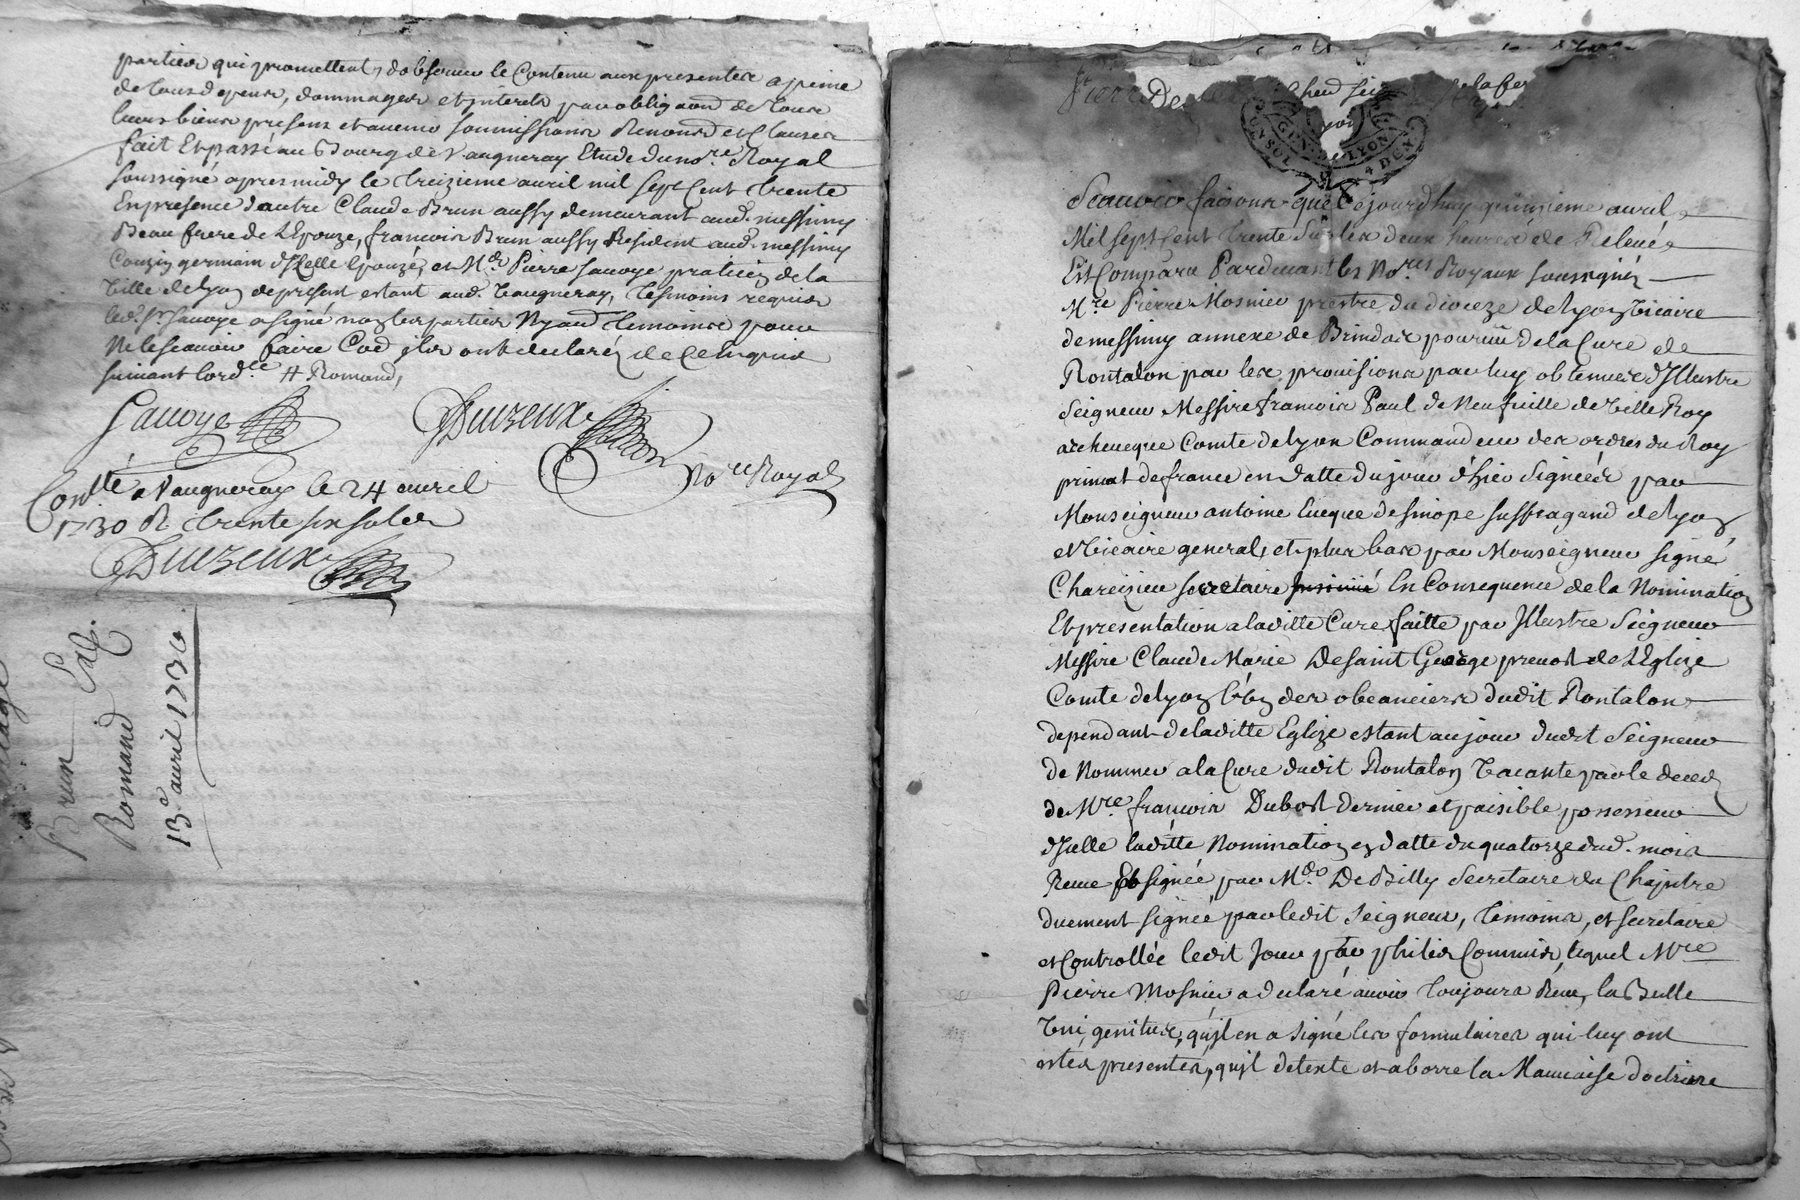 parties qui promettent, dobseruer le Contenu aux presentes a peine
de tous depens, dommages et interets par obligaõn de tous
leurs biens presens et auenir soumissions Renonõns et Clauses
fait Et passé au Bourg de Vaugneray Etude du no.re Royal
soussigné apres midy le treizieme auril mil sept Cent trente
En presence dautre Claude Brun aussy demeurant aud. messimy
Beau frere de L'Epouze, francois Brun aussy Resident aud. messimy
Couzin germain d'Icelle Epouze, et M.e Pierre Sauoye praticien de la
Ville de Lyon de present estant aud. Vaugneray, tesmoins requis
led. Sr Sauoye a signé non les parties Ny aud. temoins pour
Ne le scauoir faire Co.e ils ont declarés de Ce Enquis
suiuant Lord.ce # Romand,
Sauoye
Duizeux
No.re Royal
Con.llé a Vaugneray le 24 auril
1730 R. trente six sols
Duizeux
Brun
Romand
13e auril 1730.
Pierre De
UN SOL GEN. DE LYON 4 DEN.
Scauoir faisons que Cejourdhuy quinzieme auril
Mil sept Cent trente sur les deux heures de Releuée
Est Comparu Pardeuant les No.res Royaux soussignés
M.re Pierre Mosnier prestre du dioceze de Lyon Vicaire
de messimy annexe de Brindas pourueü de la Cure de
Rontalon par les prouisions par luy obtenues d'Illustre
Seigneur Messire francois Paul de Neufuille de Villeroy
archeueque Comte de Lyon Commandeur des ordres du Roy
primat de france en datte du jour d'hier signées par
Monseigneur antoine Eueque de sinope suffragand de Lyon
et Vicaire general, et plus bas par Monseigneur signé
Charezieu secretaire En Consequence de la Nomination
Et presentation a laditte Cure faitte par Illustre Seigneur
Messire Claude Marie De Saint George preuost de L'Eglize
Comte de Lyon L'un des obeanciers dudit Rontalon
dependant de laditte Eglize estant au jour dudit Seigneur
de Nommer a la Cure dudit Rontalon Vacante par le deced
de M.re francois Dubost dernier et paisible possesseur
d'Icelle laditte Nomination en datte du quatorze dud. mois
Reçue Et signée par M.e De Billy Secretaire du Chapitre
duement signée par ledit Seigneur, témoins, et secretaire
et Controllée ledit Jour par philis Commis, lequel M.re
Pierre Mosnier a declaré auoir toujours Reçu, la Bulle
Vnigenitus, qu'il en a signé les formulaires qui luy ont
estés presentes, qu'il deteste et aborre la Mauuaise doctrine